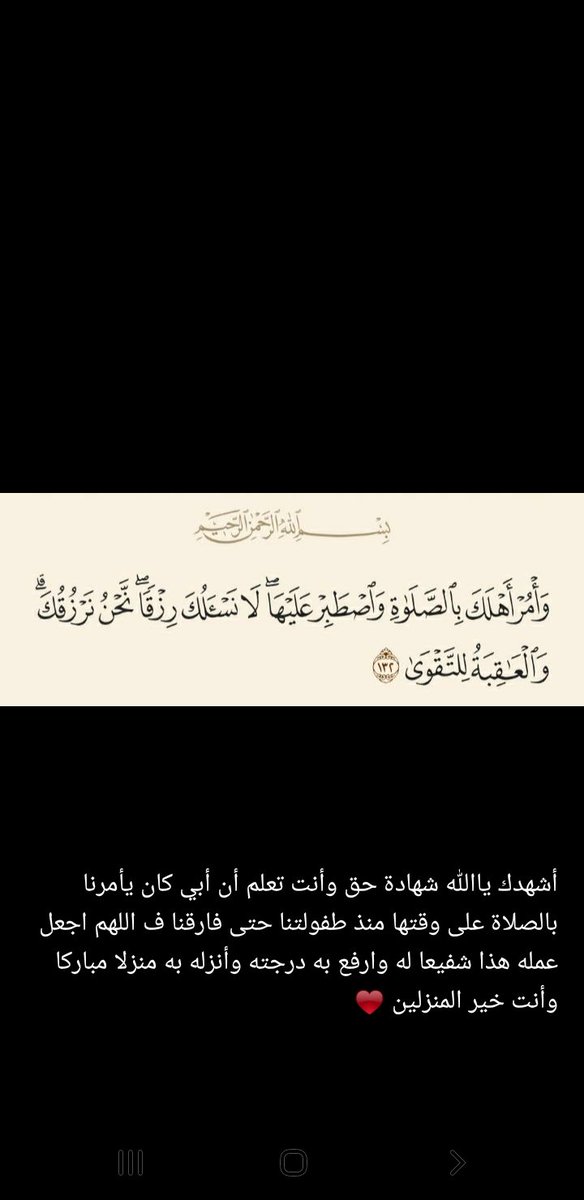 بِسْمِ ٱللَّهِ ٱلرَّحْمَٰنِ ٱلرَّحِيمِ
وَأْمُرْ أَهْلَكَ بِٱلصَّلَوٰةِ وَٱصْطَبِرْ عَلَيْهَا ۖ لَا نَسْـَٔلُكَ رِزْقًا ۖ نَّحْنُ نَرْزُقُكَ ۗ
وَٱلْعَـٰقِبَةُ لِلتَّقْوَىٰ ١٣٢
أشهدك ياالله شهادة حق وأنت تعلم أن أبي كان يأمرنا
بالصلاة على وقتها منذ طفولتنا حتى فارقنا ف اللهم اجعل
عمله هذا شفيعا له وارفع به درجته وأنزله به منزلا مباركا
وأنت خير المنزلين ♥️